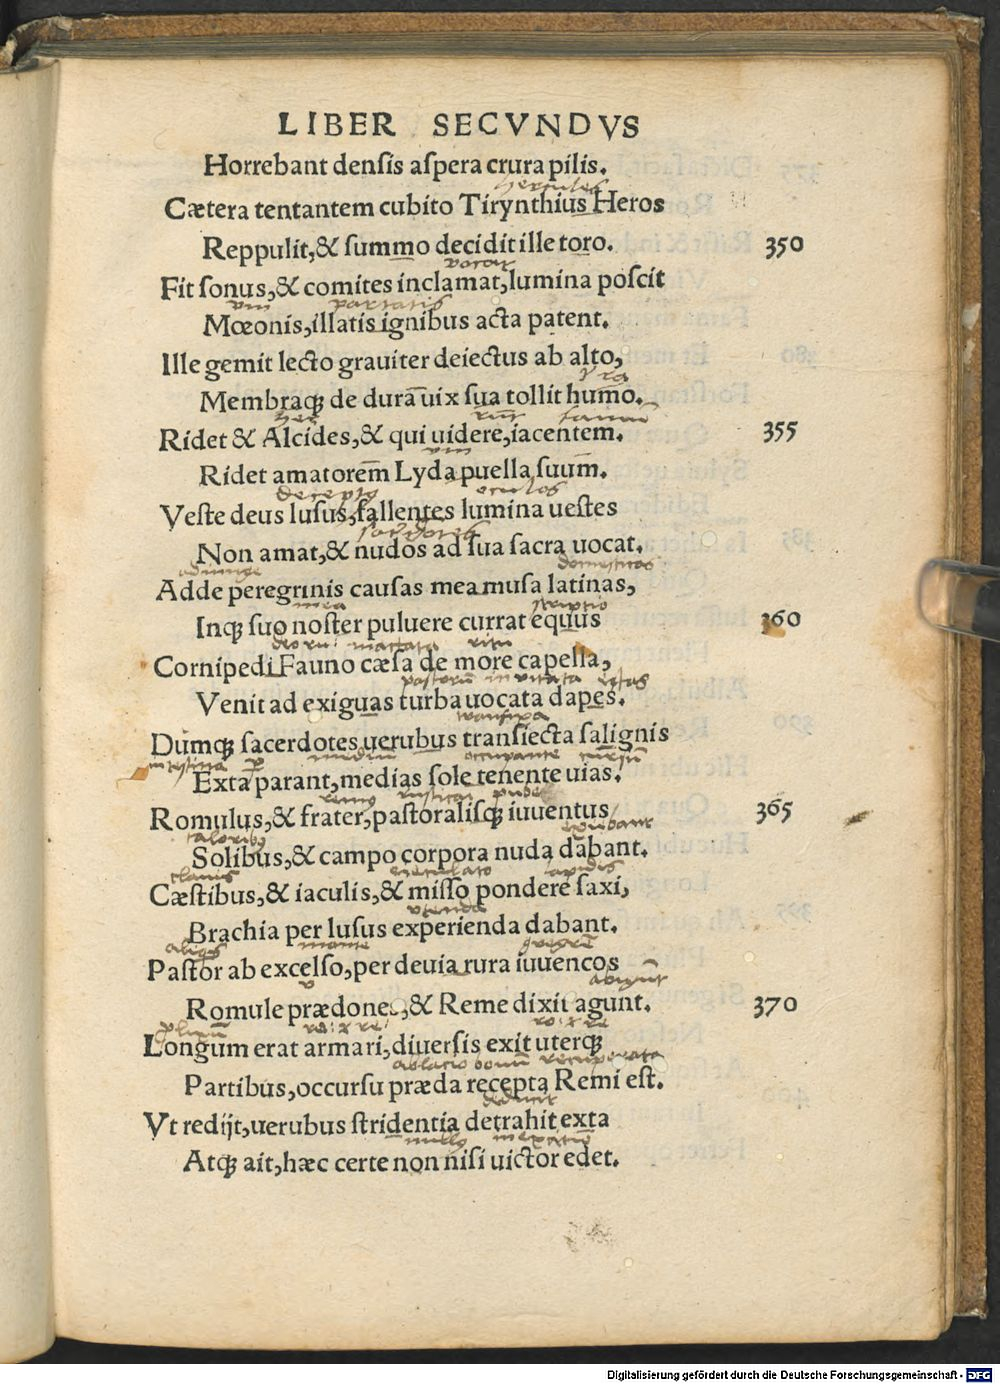 LIBER SECVNDVS
Horrebant densis aspera crura pilis.
hercules
Cætera tentantem cubito Tirynthius Heros
Reppulit,& summo decidit ille toro. 350
vocat
Fit sonus,& comites inclamat,lumina poscit
portatis
Mœonis,illatis ignibus acta patent.
Ille gemit lecto grauiter deiectus ab alto,
Membraqꝫ de dura uix sua tollit humo.
her
Ridet & Alcides,& qui uidere,iacentem. 355
Ridet amatorem Lyda puella suum.
decepto oculos
Veste deus lusus,fallentes lumina uestes
Non amat,& nudos ad sua sacra uocat.
adiunge domesticas
Adde peregrinis causas mea musa latinas,
mea scriptio
Inqꝫ suo noster puluere currat equus 360
mactata ritu
Cornipedi Fauno cæsa de more capella,
pastorū invitata
Venit ad exiguas turba uocata dapes.
transfixa
Dumqꝫ sacerdotes uerubus transiecta salignis
intestina mediū occupante cursū
Exta parant,medias sole tenente uias.
remus
Romulus,& frater,pastoralisqꝫ iuuentus 365
Solibus,& campo corpora nuda dabant.
lapidis
Cæstibus,& iaculis,& misso pondere saxi,
utenda
Brachia per lusus experienda dabant.
Pastor ab excelso,per deuia rura iuuencos
abigūt
Romule prædones,& Reme dixit agunt. 370
Longum erat armari,diuersis exit uterqꝫ
recuperata
Partibus,occursu præda recepta Remi est.
Vt redijt,uerubus stridentia detrahit exta
Atqꝫ ait,hæc certe non nisi uictor edet.
Digitalisierung gefördert durch die Deutsche Forschungsgemeinschaft - DFG